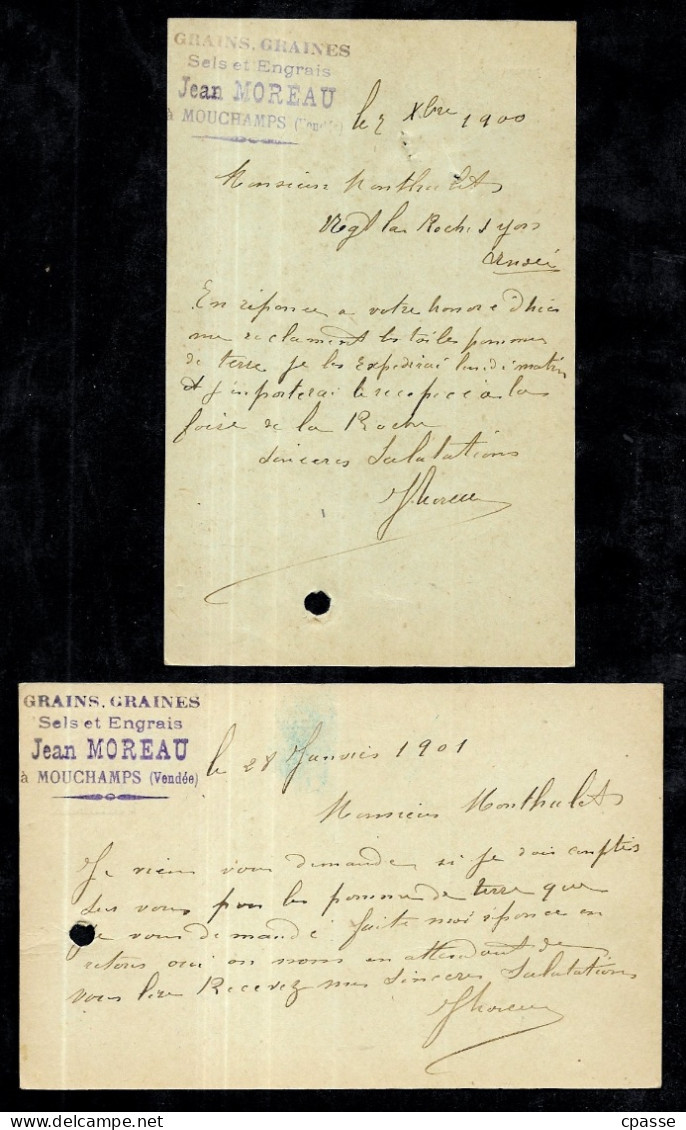 GRAINS, GRAINES
Sels et Engrais
Jean MOREAU
à MOUCHAMPS (Vendée)
le 7 Xbre 1900
Monsieur Monthulet
Negt la Roche s yon
Vendée
En réponce a votre honoré d'hier
me reclament les toiles pommes
de terre je les Expedirai lundi matin
et j'mporterai le recepicé a la
foire de la Roche
Sinceres Salutations
JMoreau
GRAINS, GRAINES
Sels et Engrais
Jean MOREAU
à MOUCHAMPS (Vendée)
le 28 Janvier 1901
Monsieur Monthulet
Je viens vous demander si je dois compter
sur vous pour les pommes de terre que
je vous demandé faite moi réponce en
retour oui ou nom en attendant de
vous lire Recevez mes Sinceres Salutations
JMoreau
cpasse